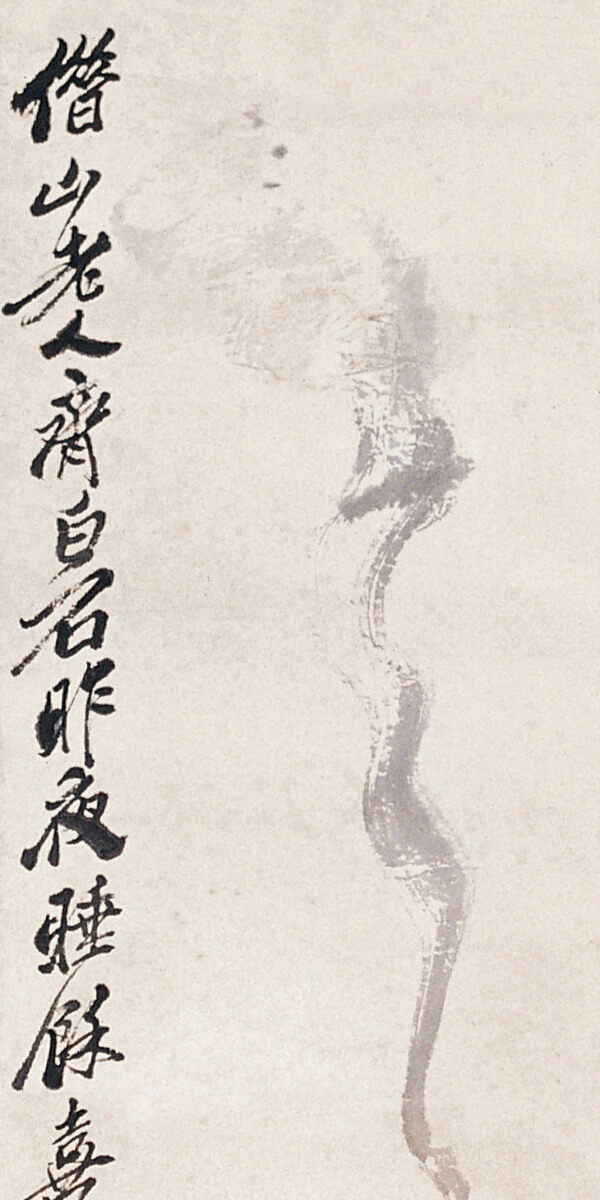 借山老人齊白石昨夜睡餘喜